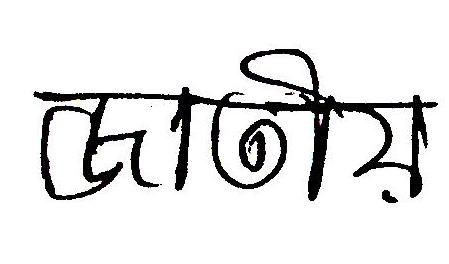 জাতীয়